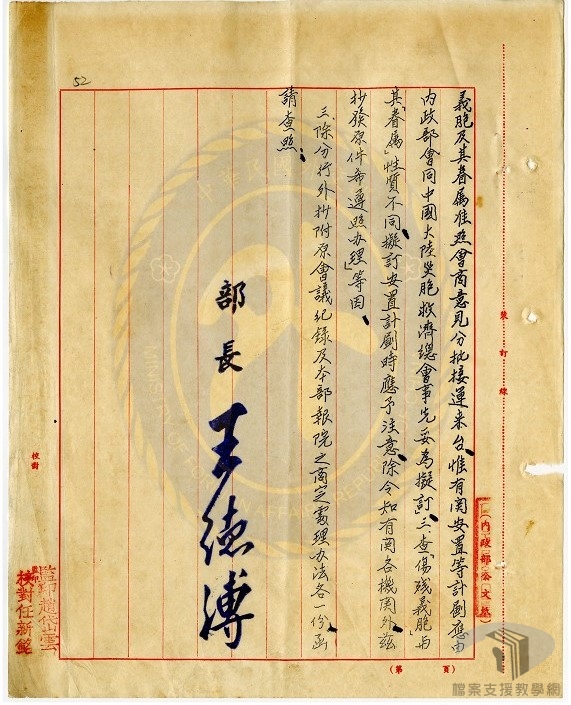 義胞及其眷属准照會商意見分批接運来台惟有関安置等計劃應由
内政部會同中國大陸災胞救濟總會事先妥為擬訂三查傷殘義胞與
其「眷属」性質不同擬訂安置計劃時應予注意除令知有関各機関外茲
抄發原件希遵照办理」等因
三、除分行外抄附原會議紀錄及本部報院之商定處理办法各一份函
請查照：
部長 王德溥
52
裝訂線
(內政部公文紙)
(第 頁)
校對
監印趙岱雲
校對任新
檔案支援教學網